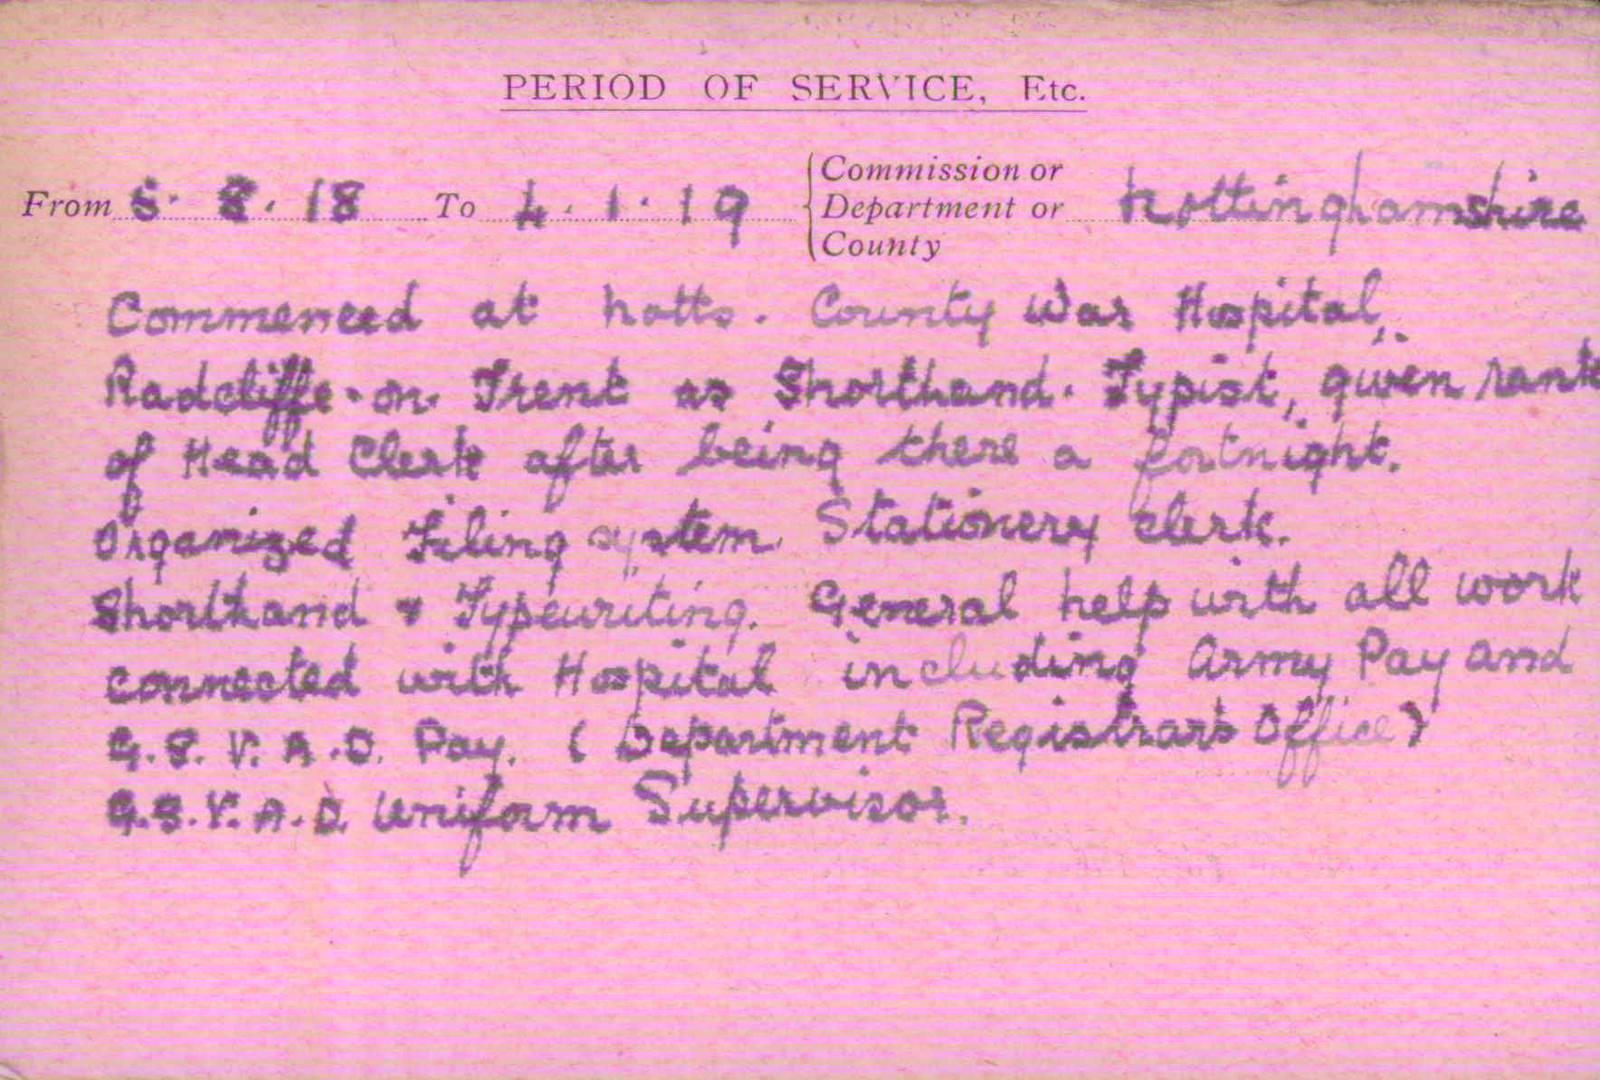 PERIOD OF SERVICE, Etc.
From 5. 8. 18 To 4. 1. 19 { Commission or Department or County Nottinghamshire
Commenced at Notts. County War Hospital,
Radcliffe-on-Trent as Shorthand-Typist, given rank
of Head Clerk after being there a fortnight.
Organized Filing system. Stationery clerk.
Shorthand & Typewriting. General help with all work
connected with Hospital including Army Pay and
G.S.V.A.D. Pay. (Department Registrar's Office)
G.S.V.A.D. Uniform Supervisor.